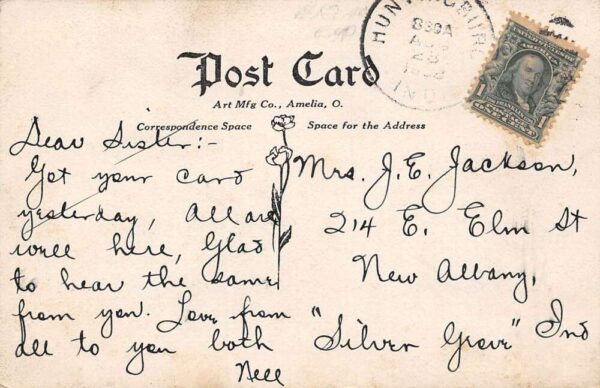 HUNTINGBURG
830A
28
IND
1
Post Card
Art Mfg Co., Amelia, O.
Correspondence Space
Space for the Address
Dear Sister:-
Got your card
yesterday, All are
well here, Glad
to hear the same
from you. Love from
all to you both
Nell
Mrs. J. E. Jackson,
214 E. Elm St
New Albany,
"Silver Grove" Ind